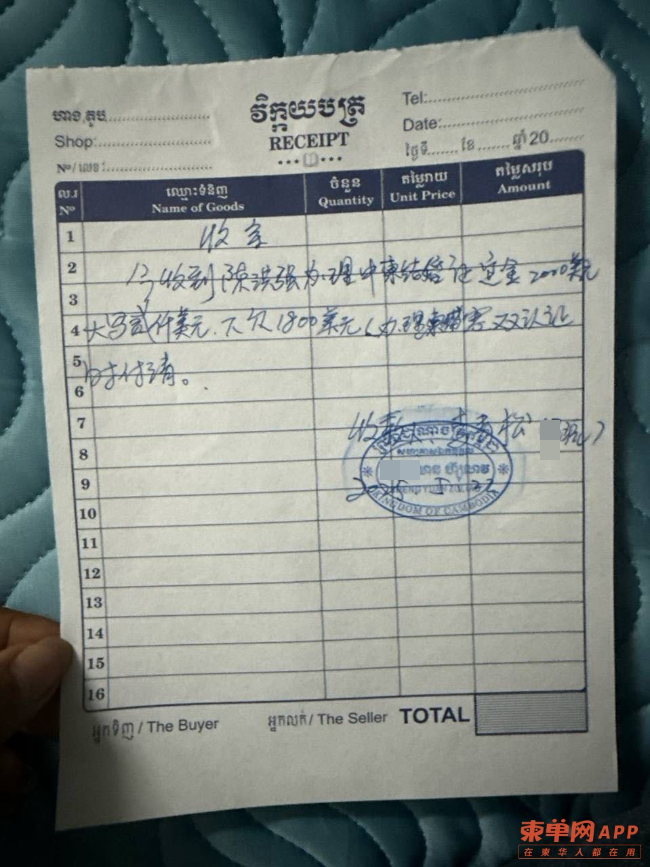 ហាង,តូប
វិក្កយបត្រ
Tel:
Shop:
RECEIPT
Date:
Nº/លេខ:
ថ្ងៃទី ខែ ឆ្នាំ 20
ល.រ ឈ្មោះទំនិញ ចំនួន តម្លៃរាយ តម្លៃសរុប
Nº Name of Goods Quantity Unit Price Amount
1 收
2 今收到陳洪强办理中柬结婚证定金2000美元
3
4 大写贰仟美元.下欠1800美元(办理 双认证
5
6 时付清。
7 收款 松
8
9
10
KINGDOM OF CAMBODIA
11
12
13
14
15
16
អ្នកទិញ / The Buyer អ្នកលក់ / The Seller TOTAL
柬单网APP
在柬华人都在用